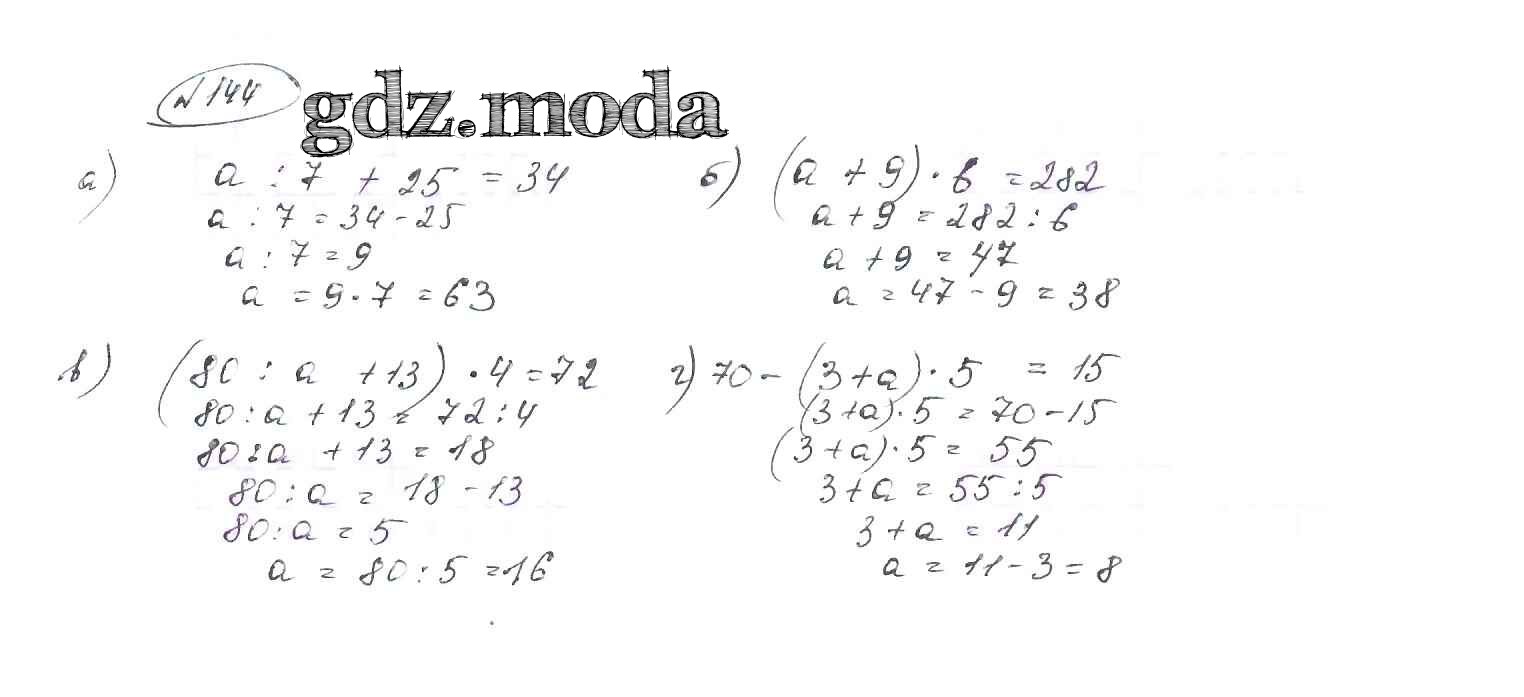 № 144
gdz.moda
а) a : 7 + 25 = 34
a : 7 = 34 - 25
a : 7 = 9
a = 9 · 7 = 63
б) (a + 9) · 6 = 282
a + 9 = 282 : 6
a + 9 = 47
a = 47 - 9 = 38
в) (80 : a + 13) · 4 = 72
80 : a + 13 = 72 : 4
80 : a + 13 = 18
80 : a = 18 - 13
80 : a = 5
a = 80 : 5 = 16
г) 70 - (3 + a) · 5 = 15
(3 + a) · 5 = 70 - 15
(3 + a) · 5 = 55
3 + a = 55 : 5
3 + a = 11
a = 11 - 3 = 8